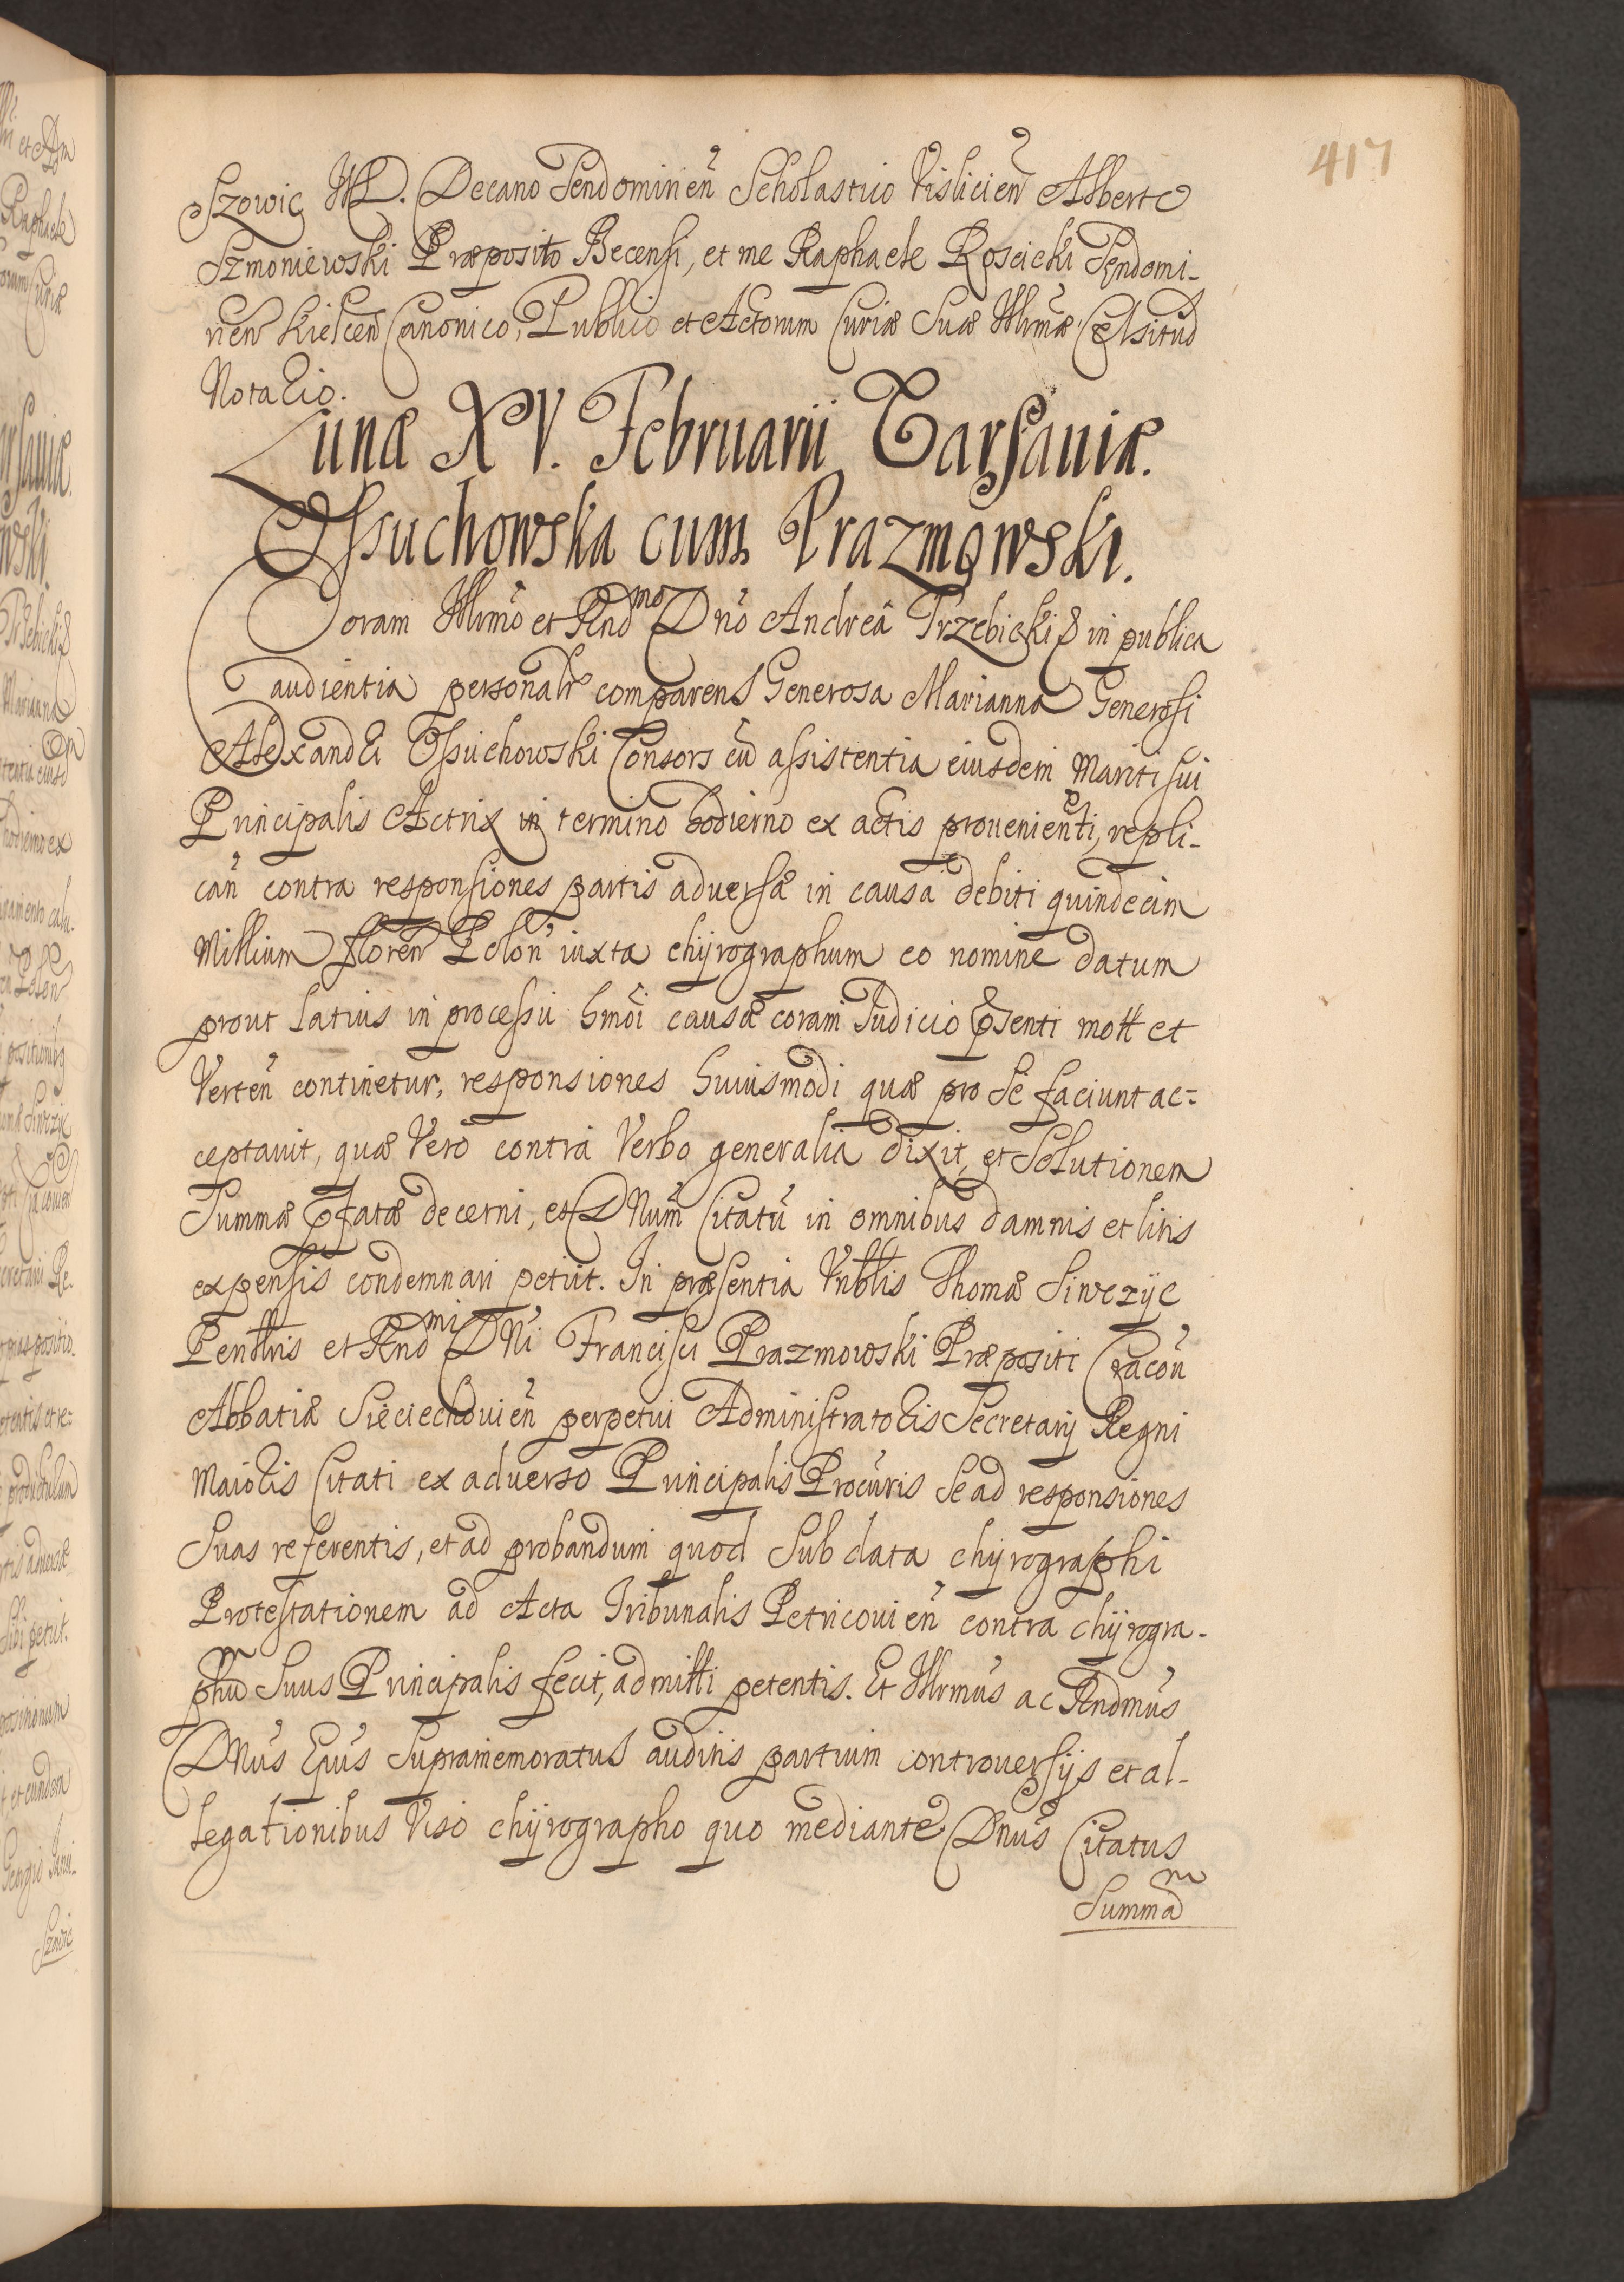 417
Szowic JUD. Decano Sendomirien̄ Scholastico Vislicien̄ Alberto
Szmoniewski Præposito Becensi, et me Raphaele Roscicki Sendomi-
rien̄ Kielcen̄ Canonico, Publico et Actorum Curiæ Suæ Illrmæ Celsitud
Notario.
Lunæ XV. Februarii Varsaviæ.
Ossuchowska cum Prazmowski.
Coram Illrmo et Rndmo Dno Andrea Trzebicki & in publica
audientia personalr comparens Generosa Marianna Generosi
Alexandri Ossuchowski Consors cū assistentia eiusdem Mariti sui
Principalis Actrix in termino hodierno ex actis prouenienti, repli-
can̄ contra responsiones partis aduersæ in causa debiti quindecim
Millium floren̄ Polon̄ iuxta chyrographum eo nomine datum
prout latius in processu hmoi causæ coram Judicio pnti mott et
Verten̄ continetur, responsiones huiusmodi quæ pro se faciunt ac=
ceptauit, quæ Vero contra Verbo generali dixit, et Solutionem
Summæ pfatæ decerni, et DNum Citatū in omnibus damnis et litis
expensis condemnari petiit. In præsentia Vnblis Thomæ Sinczyc
Penllris et Rndmi DNi Francisci Prazmowski Præpositi Cracon̄
Abbatiæ Sieciechouien̄ perpetui Administratoris Secretarij Regni
Maioris Citati ex aduerso Principalis Procuris se ad responsiones
Suas referentis, et ad probandum quod Sub data chyrographi
Protestationem ad Acta Tribunalis Petricouien̄ contra chyrogra-
phū Suus Principalis fecit, admitti petentis. Et Illrmus ac Rndmus
DNus Epus Supramemoratus auditis partium controuersijs et al-
legationibus Viso chyrographo quo mediante Dnus Citatus
Summam